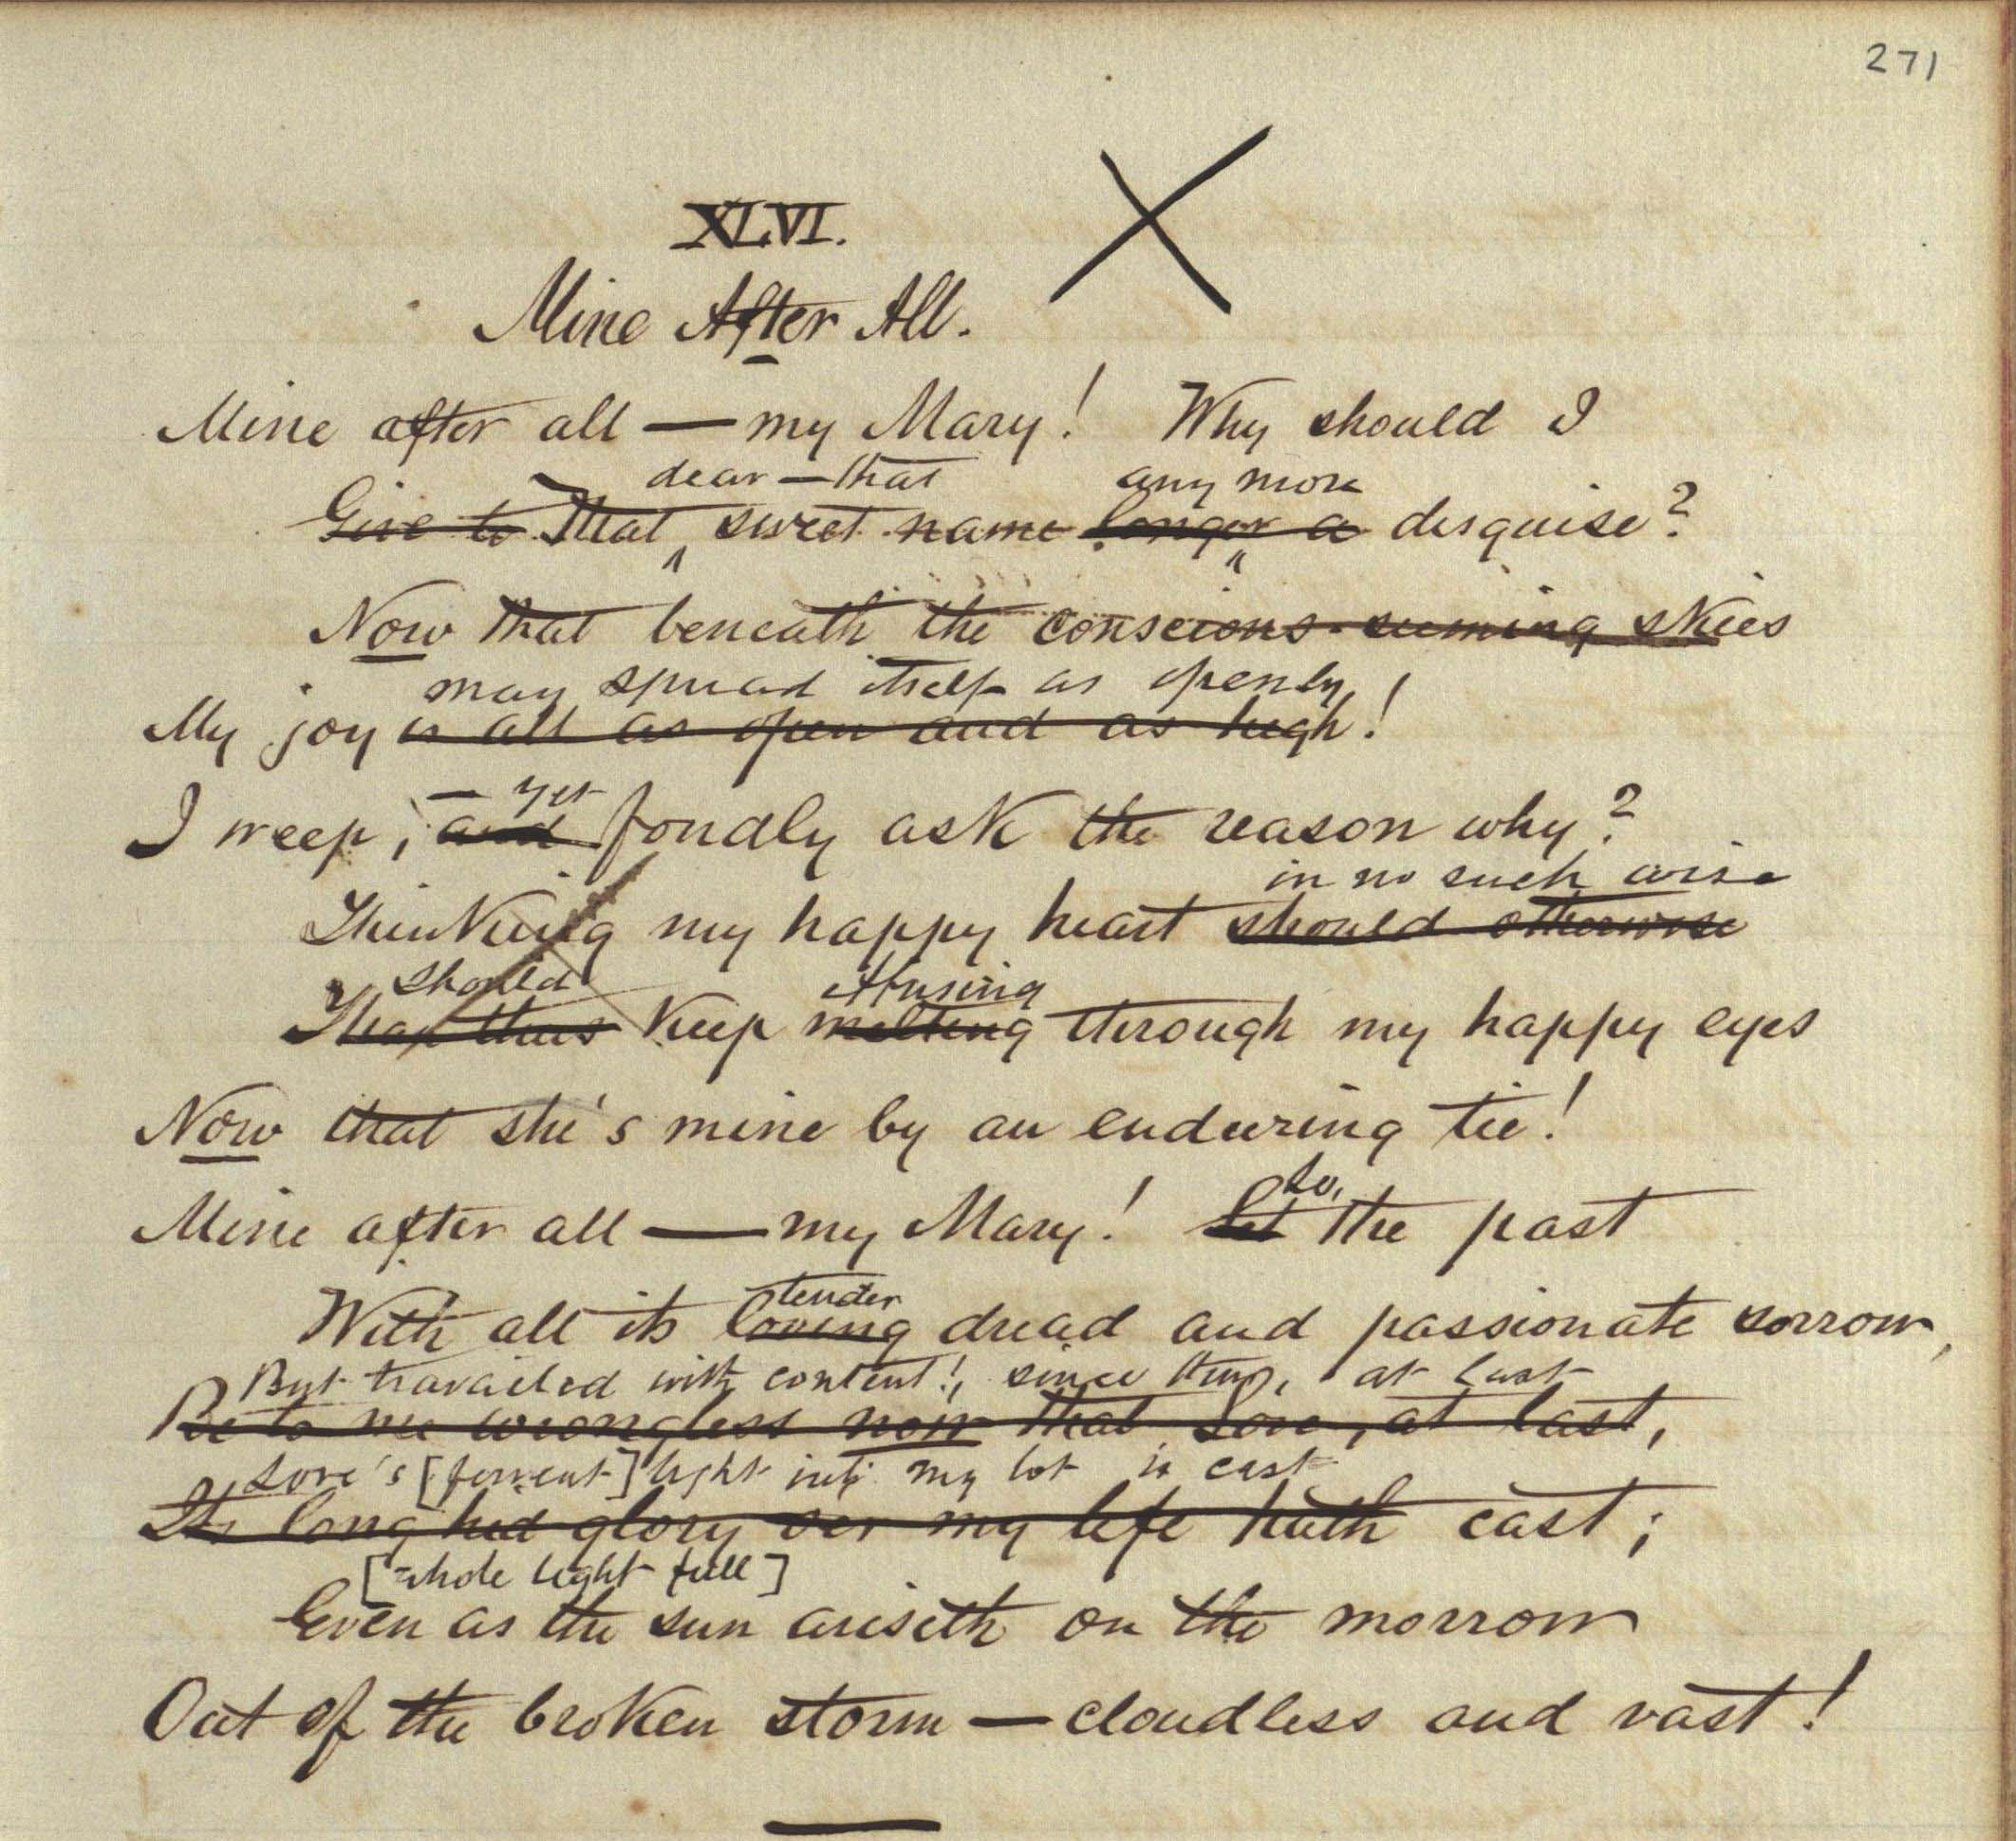 271
XLVI.
Mine After All.
Mine after all — my Mary! Why should I
dear — that any more
Give to That sweet name longer a disguise?
Now that beneath the conscious-seeming skies
may spread itself as openly!
My joy is all as open and as high!
— yet
I weep, and fondly ask the reason why?
in no such wise
Thinking my happy heart should otherwise
should
Than thus keep melting through my happy eyes
Now that she's mine by an enduring tie!
So,
Mine after all — my Mary! let the past
tender
With all its loving dread and passionate sorrow,
But travailed with content!, since thus, at last
Be to me wrongless now that Love, at last,
Love's [fervent] light into my lot is cast
Its long hid glory oer my life hath cast;
[whole light full]
Even as the sun ariseth on the morrow
Out of the broken storm — cloudless and vast!